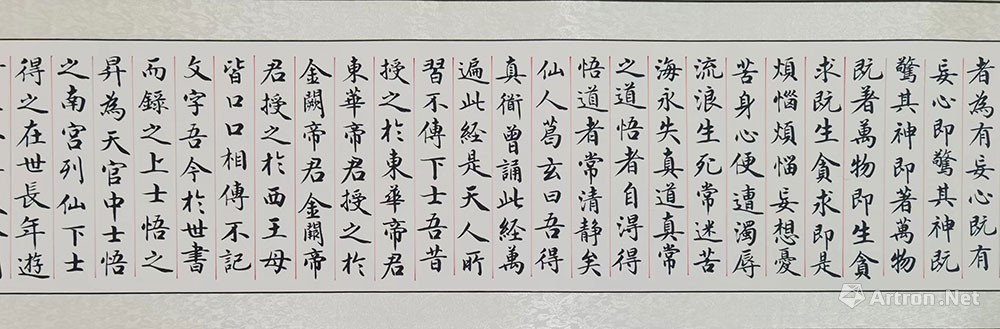 者為有妄心既有
妄心即驚其神既
驚其神即著萬物
既著萬物即生貪
求既生貪求即是
煩惱煩惱妄想憂
苦身心便遭濁辱
流浪生死常迷苦
海永失真道真常
之道悟者自得得
悟道者常清靜矣
仙人葛玄曰吾得
真衜曾誦此経萬
遍此経是天人所
習不傳下士吾昔
授之於東華帝君
東華帝君授之於
金闕帝君金闕帝
君授之於西王母
皆口口相傳不記
文字吾今於世書
而錄之上士悟之
昇為天官中士悟
之南宮列仙下士
得之在世長年遊
Artron.Net